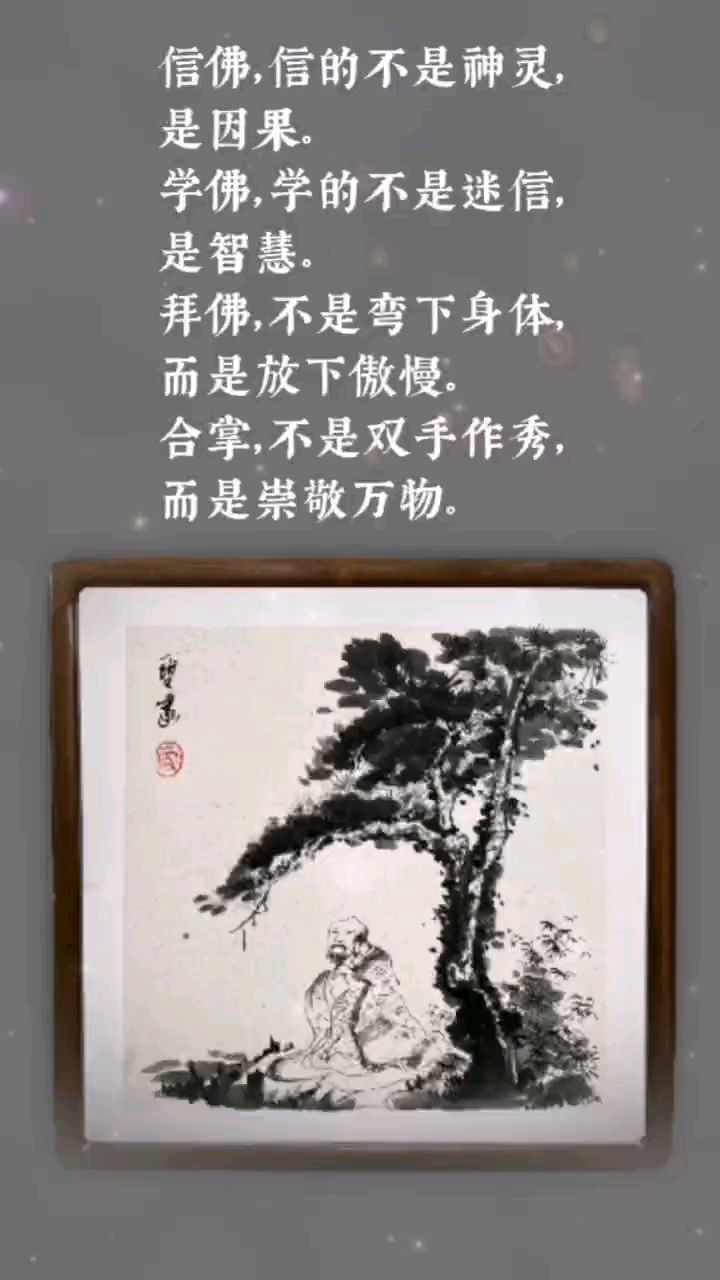 信佛,信的不是神灵,
是因果。
学佛,学的不是迷信,
是智慧。
拜佛,不是弯下身体,
而是放下傲慢。
合掌,不是双手作秀,
而是崇敬万物。